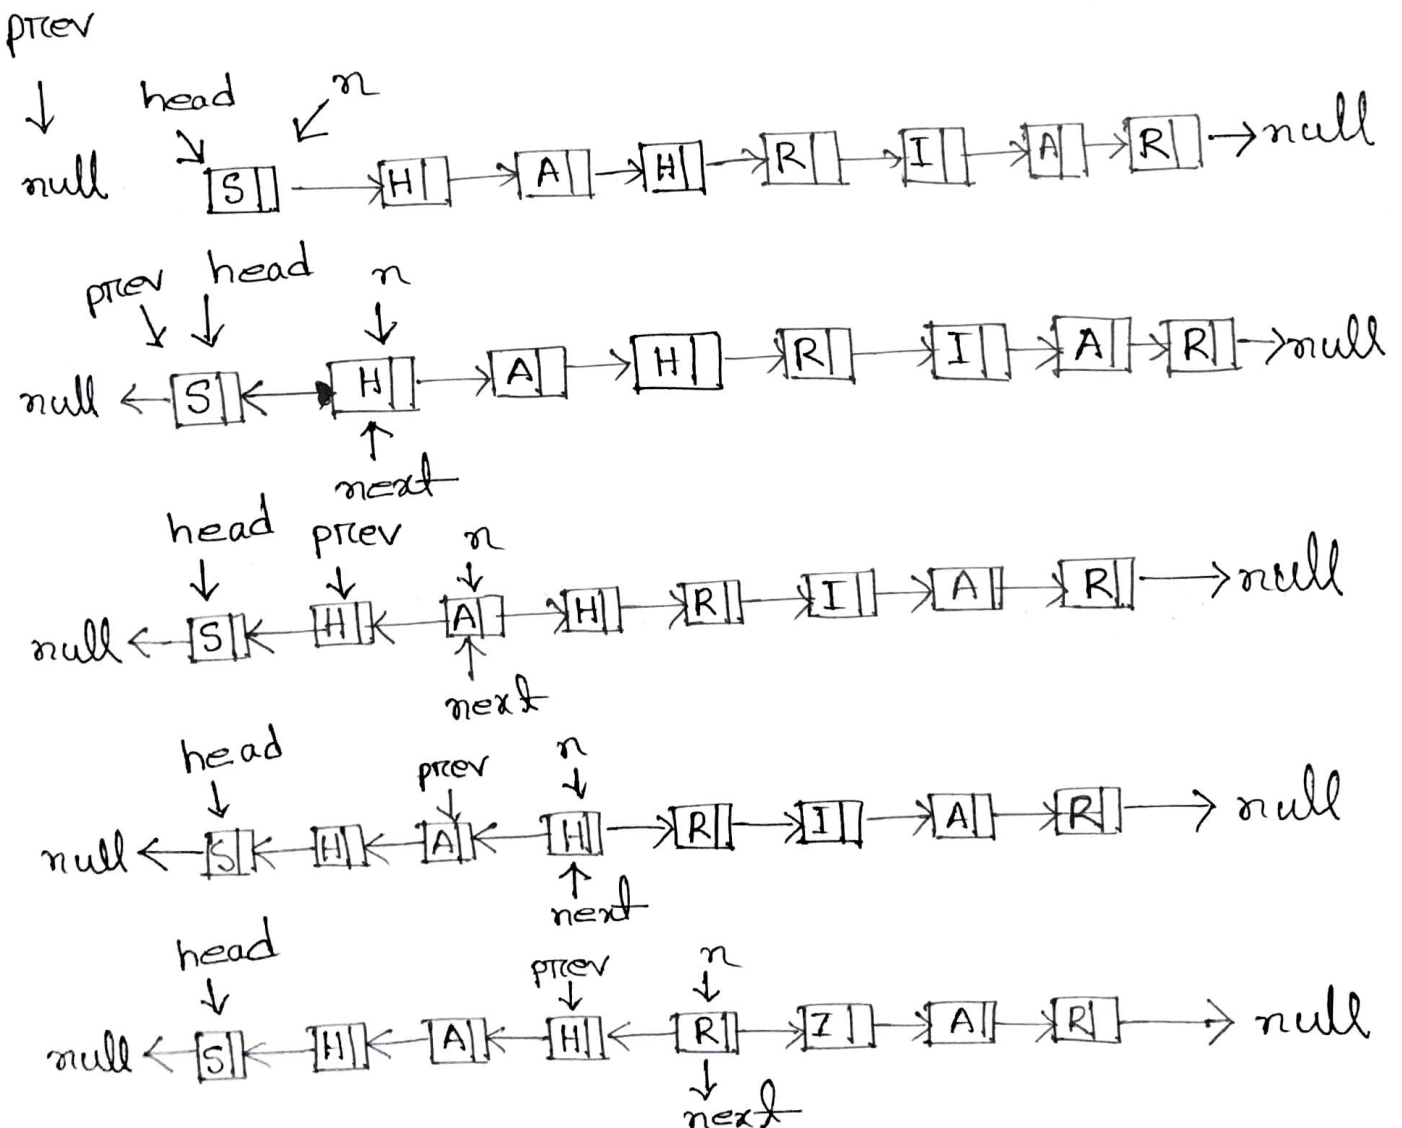 prev
head n
null S H A H R I A R null
prev head n
null S H A H R I A R null
next
head prev n
null S H A H R I A R null
next
head prev n
null S H A H R I A R null
next
head prev n
null S H A H R I A R null
next